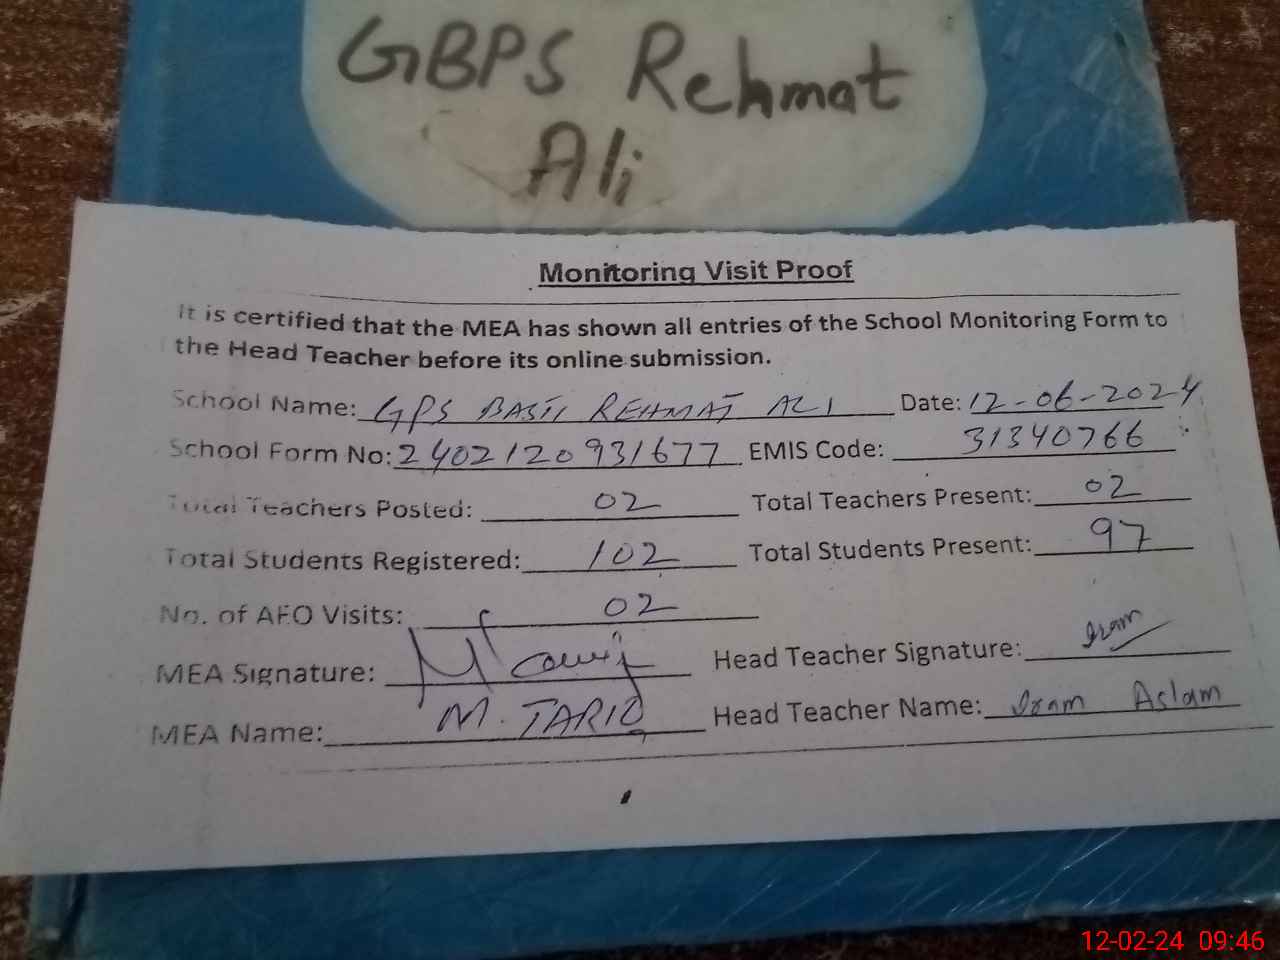 GBPS Rehmat
Ali
Monitoring Visit Proof
It is certified that the MEA has shown all entries of the School Monitoring Form to
the Head Teacher before its online submission.
School Name: GPS BASTI REHMAT ALI Date: 12-06-2024
School Form No: 2402120931677 EMIS Code: 31340766
Total Teachers Posted: 02 Total Teachers Present: 02
Total Students Registered: 102 Total Students Present: 97
No. of AEO Visits: 02
MEA Signature: Head Teacher Signature: Iram
MEA Name: M. TARIQ Head Teacher Name: Iram Aslam
12-02-24 09:46